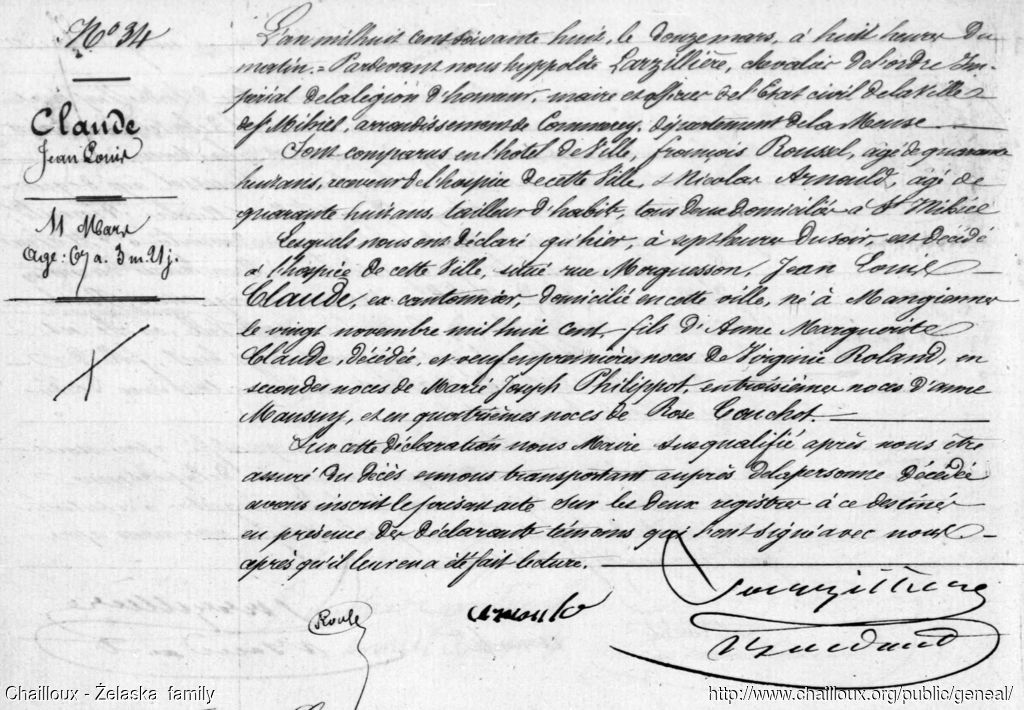 N° 34
Claude
Jean Louis
11 Mars
Age : 67 a. 3 m. 21 j.
L'an mil huit cent soixante huit, le douze mars, à huit heures du
matin. = Pardevant nous hyppolite Larzillière, chevalier de l'ordre Im-
périal de la légion d'honneur, maire et officier de l'Etat civil de la Ville
de St Mihiel, arrondissement de Commercy, département de la Meuse
Sont comparus en l'hôtel de Ville, françois Roussel, âgé de quarante
huit ans, receveur de l'hospice de cette Ville, & Nicolas Arnould, âgé de
quarante huit ans, tailleur d'habit, tous deux domiciliés à St Mihiel
Lesquels nous ont déclaré qu'hier, à sept heures du soir, est décédé
à l'hospice de cette Ville, situé rue Morguesson, Jean Louis
Claude, ex cantonnier, domicilié en cette ville, né à Mangiennes
le vingt novembre mil huit cent, fils d'Anne Marguerite
Claude, décédée, et veuf en premières noces de Virginie Roland, en
secondes noces de Marie Joseph Philippot, en troisièmes noces d'anne
Mansuy, et en quatrièmes noces de Rose Couchot.
Sur cette déclaration nous Maire susqualifié après nous être
assuré du décès en nous transportant auprès de la personne décédée
avons inscrit le présent acte sur les deux registres à ce destinés
en présence des déclarants témoins qui ont signé avec nous
après qu'il leur en a été fait lecture.
Larzillière
Arnould
Chailloux - Żelaska family
http://www.chailloux.org/public/geneal/